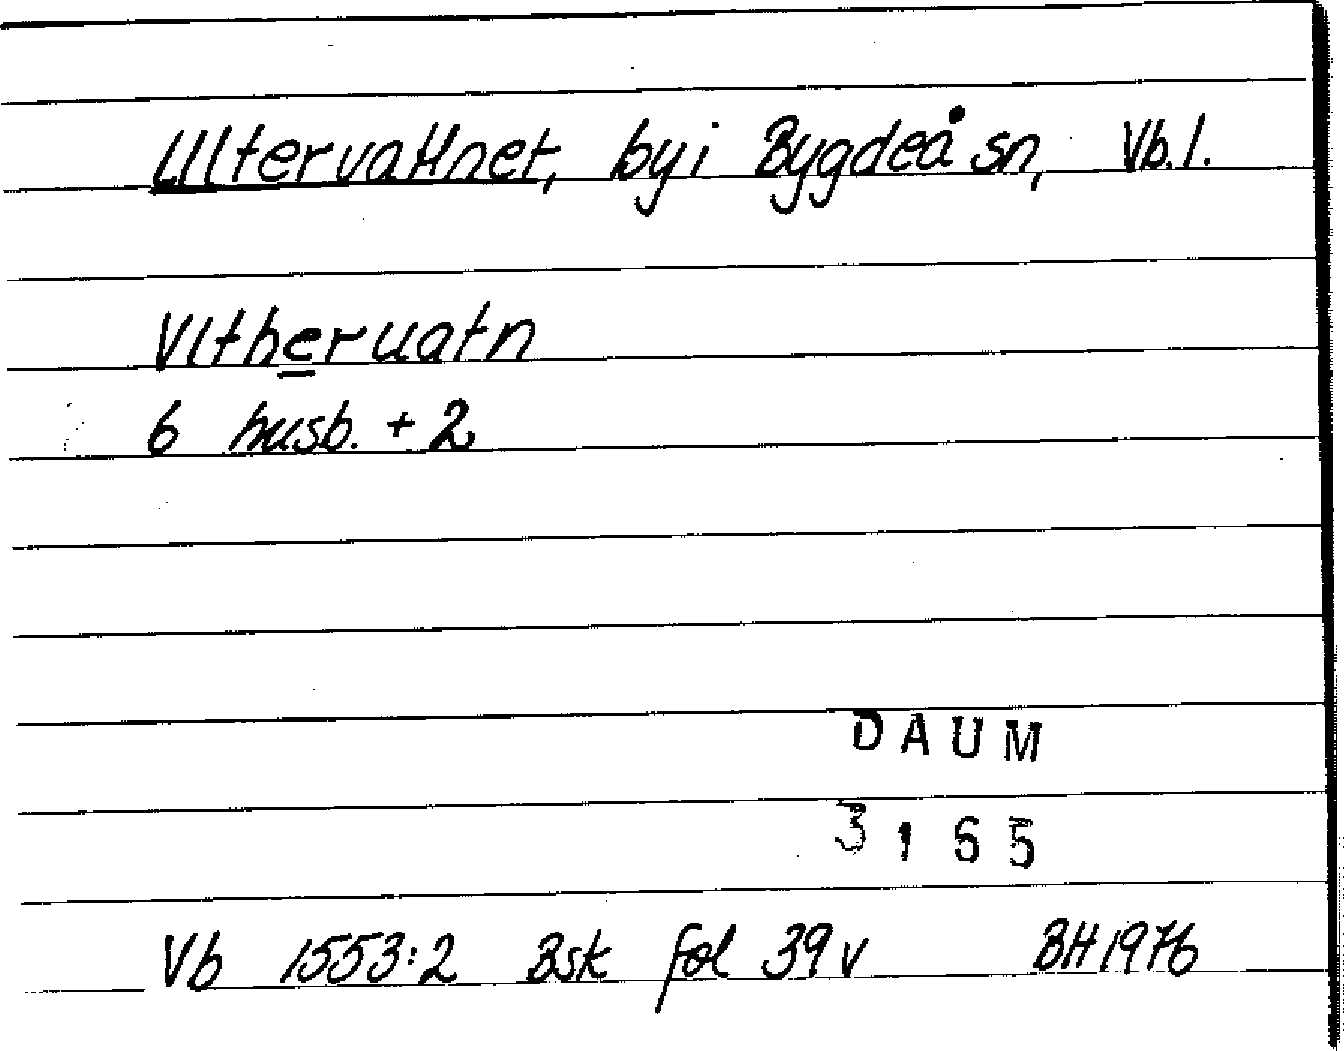 Ultervattnet, by i Bygdeå sn, Vb. l.
Vltheruatn
6 husb. + 2
DAUM
3165
Vb 1553:2 Bsk fol 39 v BH 1976